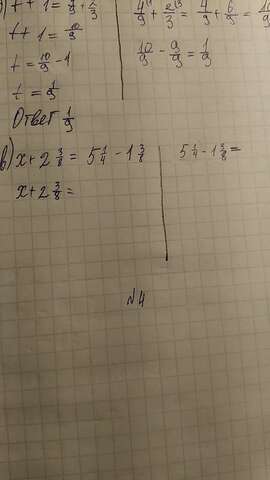 t + 1 = 4/9 + 2/3
t + 1 = 10/9
t = 10/9 - 1
t = 1/9
Ответ 1/9
4/9 + 2/3 = 4/9 + 6/9 = 10/9
10/9 - 9/9 = 1/9
в) x + 2 3/8 = 5 1/4 - 1 3/8
x + 2 3/8 =
5 1/4 - 1 3/8 =
№4